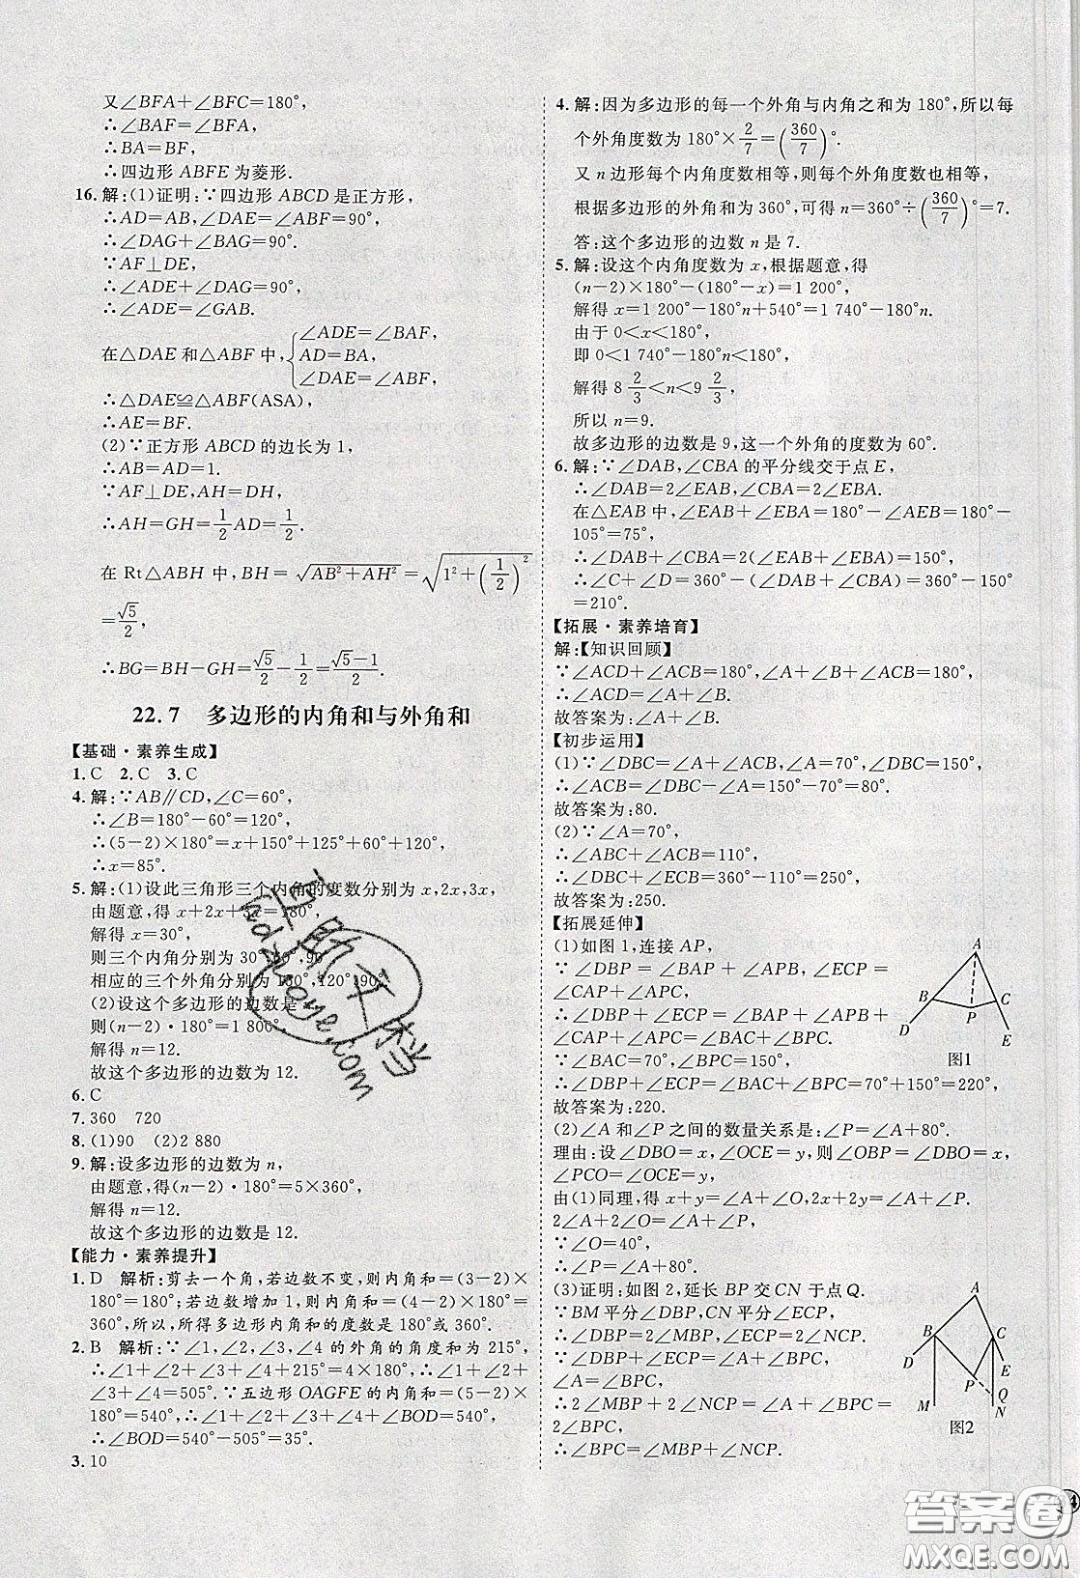 又∠BFA+∠BFC=180°,
∴∠BAF=∠BFA,
∴BA=BF,
∴四边形 ABFE 为菱形.
16.解:(1)证明:∵四边形 ABCD 是正方形,
∴AD=AB,∠DAE=∠ABF=90°,
∴∠DAG+∠BAG=90°.
∵AF⊥DE,
∴∠DAG+∠ADE=90°,
∴∠ADE=∠GAB.
在△DAE 和△ABF 中,{∠ADE=∠BAF,
AD=BA,
∠DAE=∠ABF,
∴△DAE≌△ABF(ASA).
∴AE=BF.
(2)∵正方形 ABCD 的边长为 1,
∴AB=AD=1.
∵AF⊥DE,AH=DH,
∴AH=GH=1/2AD=1/2.
在 Rt△ABH 中,BH=√(AB²+AH²)=√(1²+(1/2)²)
=√5/2,
∴BG=BH-GH=√5/2-1/2=(√5-1)/2.
22.7 多边形的内角和与外角和
【基础·素养生成】
1.C 2.C 3.C
4.解:∵AB∥CD,∠C=60°,
∴∠B=180°-60°=120°,
∴(5-2)×180°=x+150°+125°+60°+120°,
∴x=85°.
5.解:(1)设此三角形三个内角的度数分别为 x,2x,3x,
由题意,得 x+2x+3x=180°,
解得 x=30°,
则三个内角分别为 30°,60°,90°
相应的三个外角分别为 150°,120°,90°.
(2)设这个多边形的边数是
则(n-2)·180°=1 800°
解得 n=12.
故这个多边形的边数为 12.
6.C
7.360 720
8.(1)90 (2)2 880
9.解:设多边形的边数为 n,
由题意,得(n-2)·180°=5×360°,
解得 n=12.
故这个多边形的边数是 12.
【能力·素养提升】
1.D 解析:剪去一个角,若边数不变,则内角和=(3-2)×
180°=180°;若边数增加 1,则内角和=(4-2)×180°=
360°,所以,所得多边形内角和的度数是 180°或 360°.
2.B 解析:∵∠1,∠2,∠3,∠4 的外角的角度和为 215°,
∴∠1+∠2+∠3+∠4+215°=4×180°,∴∠1+∠2+
∠3+∠4=505°.∵五边形 OAGFE 的内角和=(5-2)×
180°=540°,∴∠1+∠2+∠3+∠4+∠BOD=540°,
∴∠BOD=540°-505°=35°.
3.10
4.解:因为多边形的每一个外角与内角之和为 180°,所以每
个外角度数为 180°×2/7=(360/7)°.
又 n 边形每个内角度数相等,则每个外角度数也相等,
根据多边形的外角和为 360°,可得 n=360°÷(360/7)°=7.
答:这个多边形的边数 n 是 7.
5.解:设这个内角度数为 x,根据题意,得
(n-2)×180°-(180°-x)=1 200°,
解得 x=1 200°-180°n+540°=1 740°-180°n,
由于 0<x<180°,
即 0<1 740°-180°n<180°,
解得 8 2/3<n<9 2/3,
所以 n=9.
故多边形的边数是 9,这一个外角的度数为 60°.
6.解:∵∠DAB,∠CBA 的平分线交于点 E,
∴∠DAB=2∠EAB,∠CBA=2∠EBA.
在△EAB 中,∠EAB+∠EBA=180°-∠AEB=180°-
105°=75°,
∴∠DAB+∠CBA=2(∠EAB+∠EBA)=150°,
∴∠C+∠D=360°-(∠DAB+∠CBA)=360°-150°
=210°.
【拓展·素养培育】
解:【知识回顾】
∵∠ACD+∠ACB=180°,∠A+∠B+∠ACB=180°,
∴∠ACD=∠A+∠B.
故答案为:=.
【初步运用】
(1)∵∠DBC=∠A+∠ACB,∠A=70°,∠DBC=150°,
∴∠ACB=∠DBC-∠A=150°-70°=80°.
故答案为:80.
(2)∵∠A=70°,
∴∠ABC+∠ACB=110°,
∴∠DBC+∠ECB=360°-110°=250°.
故答案为:250.
【拓展延伸】
(1)如图 1,连接 AP,
∵∠DBP=∠BAP+∠APB,∠ECP=
∠CAP+∠APC,
∴∠DBP+∠ECP=∠BAP+∠APB+
∠CAP+∠APC=∠BAC+∠BPC.
∵∠BAC=70°,∠BPC=150°,
∴∠DBP+∠ECP=∠BAC+∠BPC=70°+150°=220°,
故答案为:220.
A
B
P
C
D
E
图1
(2)∠A 和∠P 之间的数量关系是:∠P=∠A+80°.
理由:设∠DBO=x,∠OCE=y,则∠OBP=∠DBO=x,
∠PCO=∠OCE=y,
由(1)同理,得 x+y=∠A+∠O,2x+2y=∠A+∠P.
2∠A+2∠O=∠A+∠P,
∵∠O=40°,
∴∠P=∠A+80°.
(3)证明:如图 2,延长 BP 交 CN 于点 Q.
∵BM 平分∠DBP,CN 平分∠ECP,
∴∠DBP=2∠MBP,∠ECP=2∠NCP,
∵∠DBP+∠ECP=∠A+∠BPC,
∠A=∠BPC,
∴2∠MBP+2∠NCP=∠A+∠BPC=
2∠BPC,
∴∠BPC=∠MBP+∠NCP.
A
B
C
D
E
P
Q
M
N
图2
答案圈
MXQE.COM